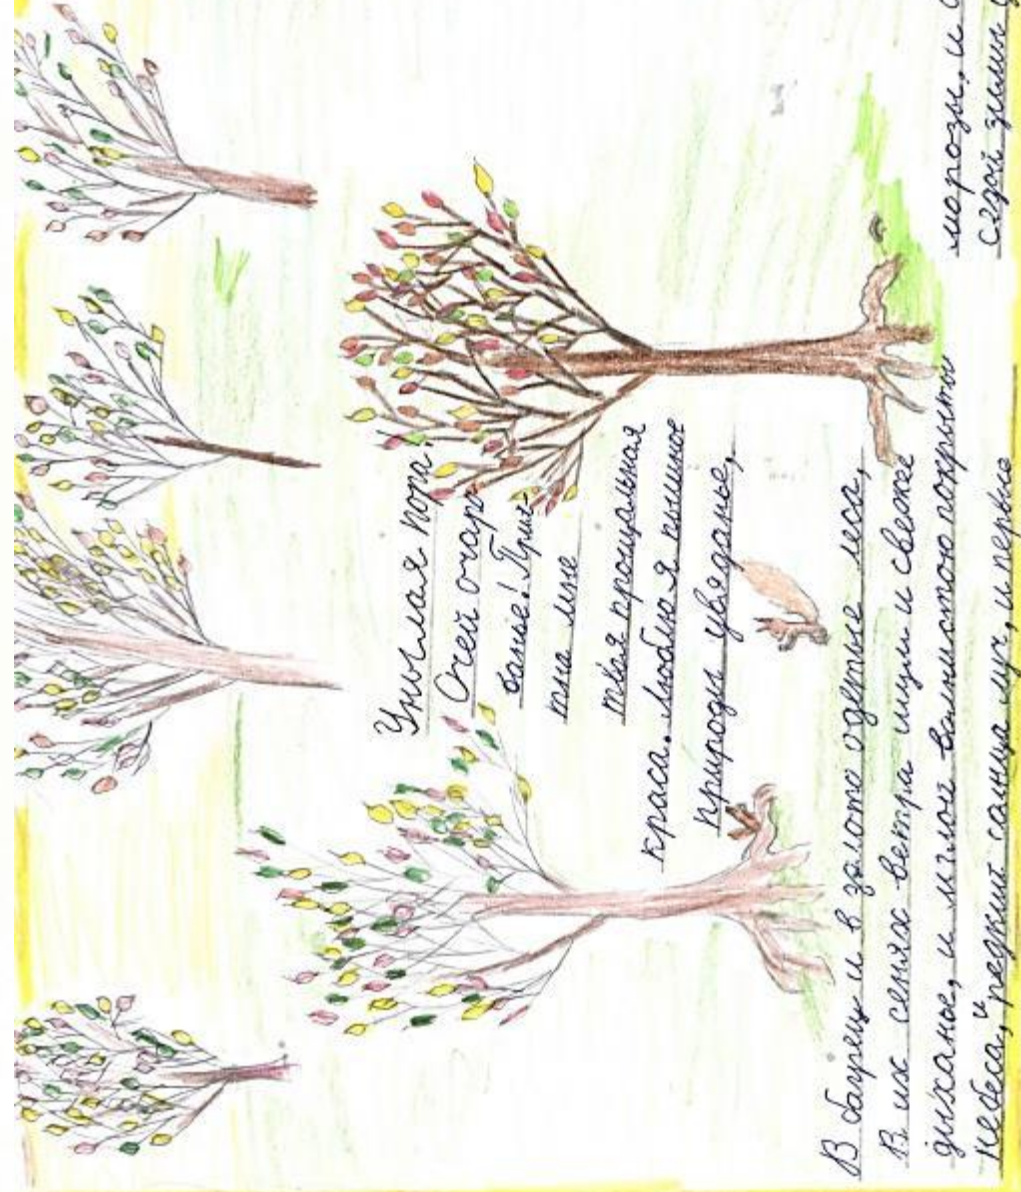 Унылая пора
Очей очаро
ванье! Прият-
тна мне
твоя прощальная
краса. Люблю я пышное
природы увяданье,
В багрец и в золото одетые леса,
В их сенях ветра шум и свежее
дыханье, и мглой волнистою покрыты
небеса, и редкий солнца луч, и первые
морозы, и
седой зимы